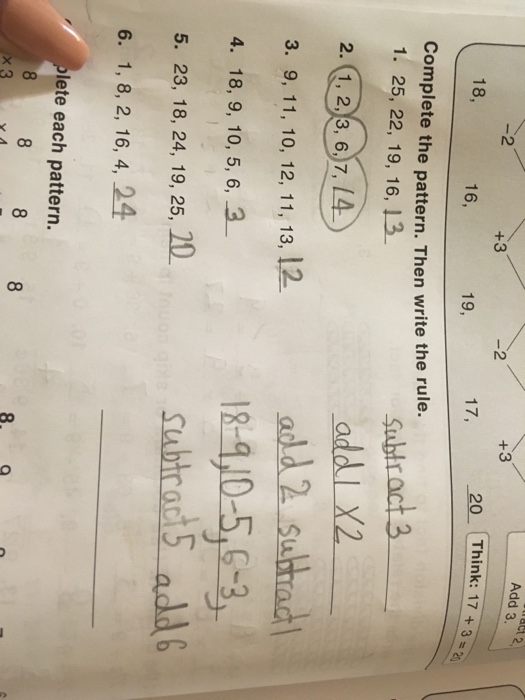 Add 3.
-2 +3 -2 +3
18, 16, 19, 17, 20
Think: 17 + 3 = 20
Complete the pattern. Then write the rule.
1. 25, 22, 19, 16, 13 subtract 3
2. 1, 2, 3, 6, 7, 14 add 1 x2
3. 9, 11, 10, 12, 11, 13, 12 add 2 subtract 1
4. 18, 9, 10, 5, 6, 3 18-9, 10-5, 6-3,
5. 23, 18, 24, 19, 25, 20 subtract 5 add 6
6. 1, 8, 2, 16, 4, 24
plete each pattern.
8 8 8 8 8. 9
x3 x4